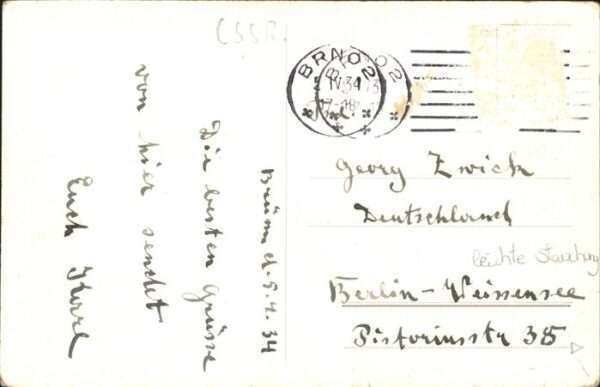 ČSSR
BRNO 2
BRNO 2
IV 34
17-18
Georg Zwick
Deutschland
leichte Stauchung
Berlin-Weissensee
Pistoriusstr 38
Brünn d. 5.4.34
Die besten Grüsse
von hier sendet
Euch Karl